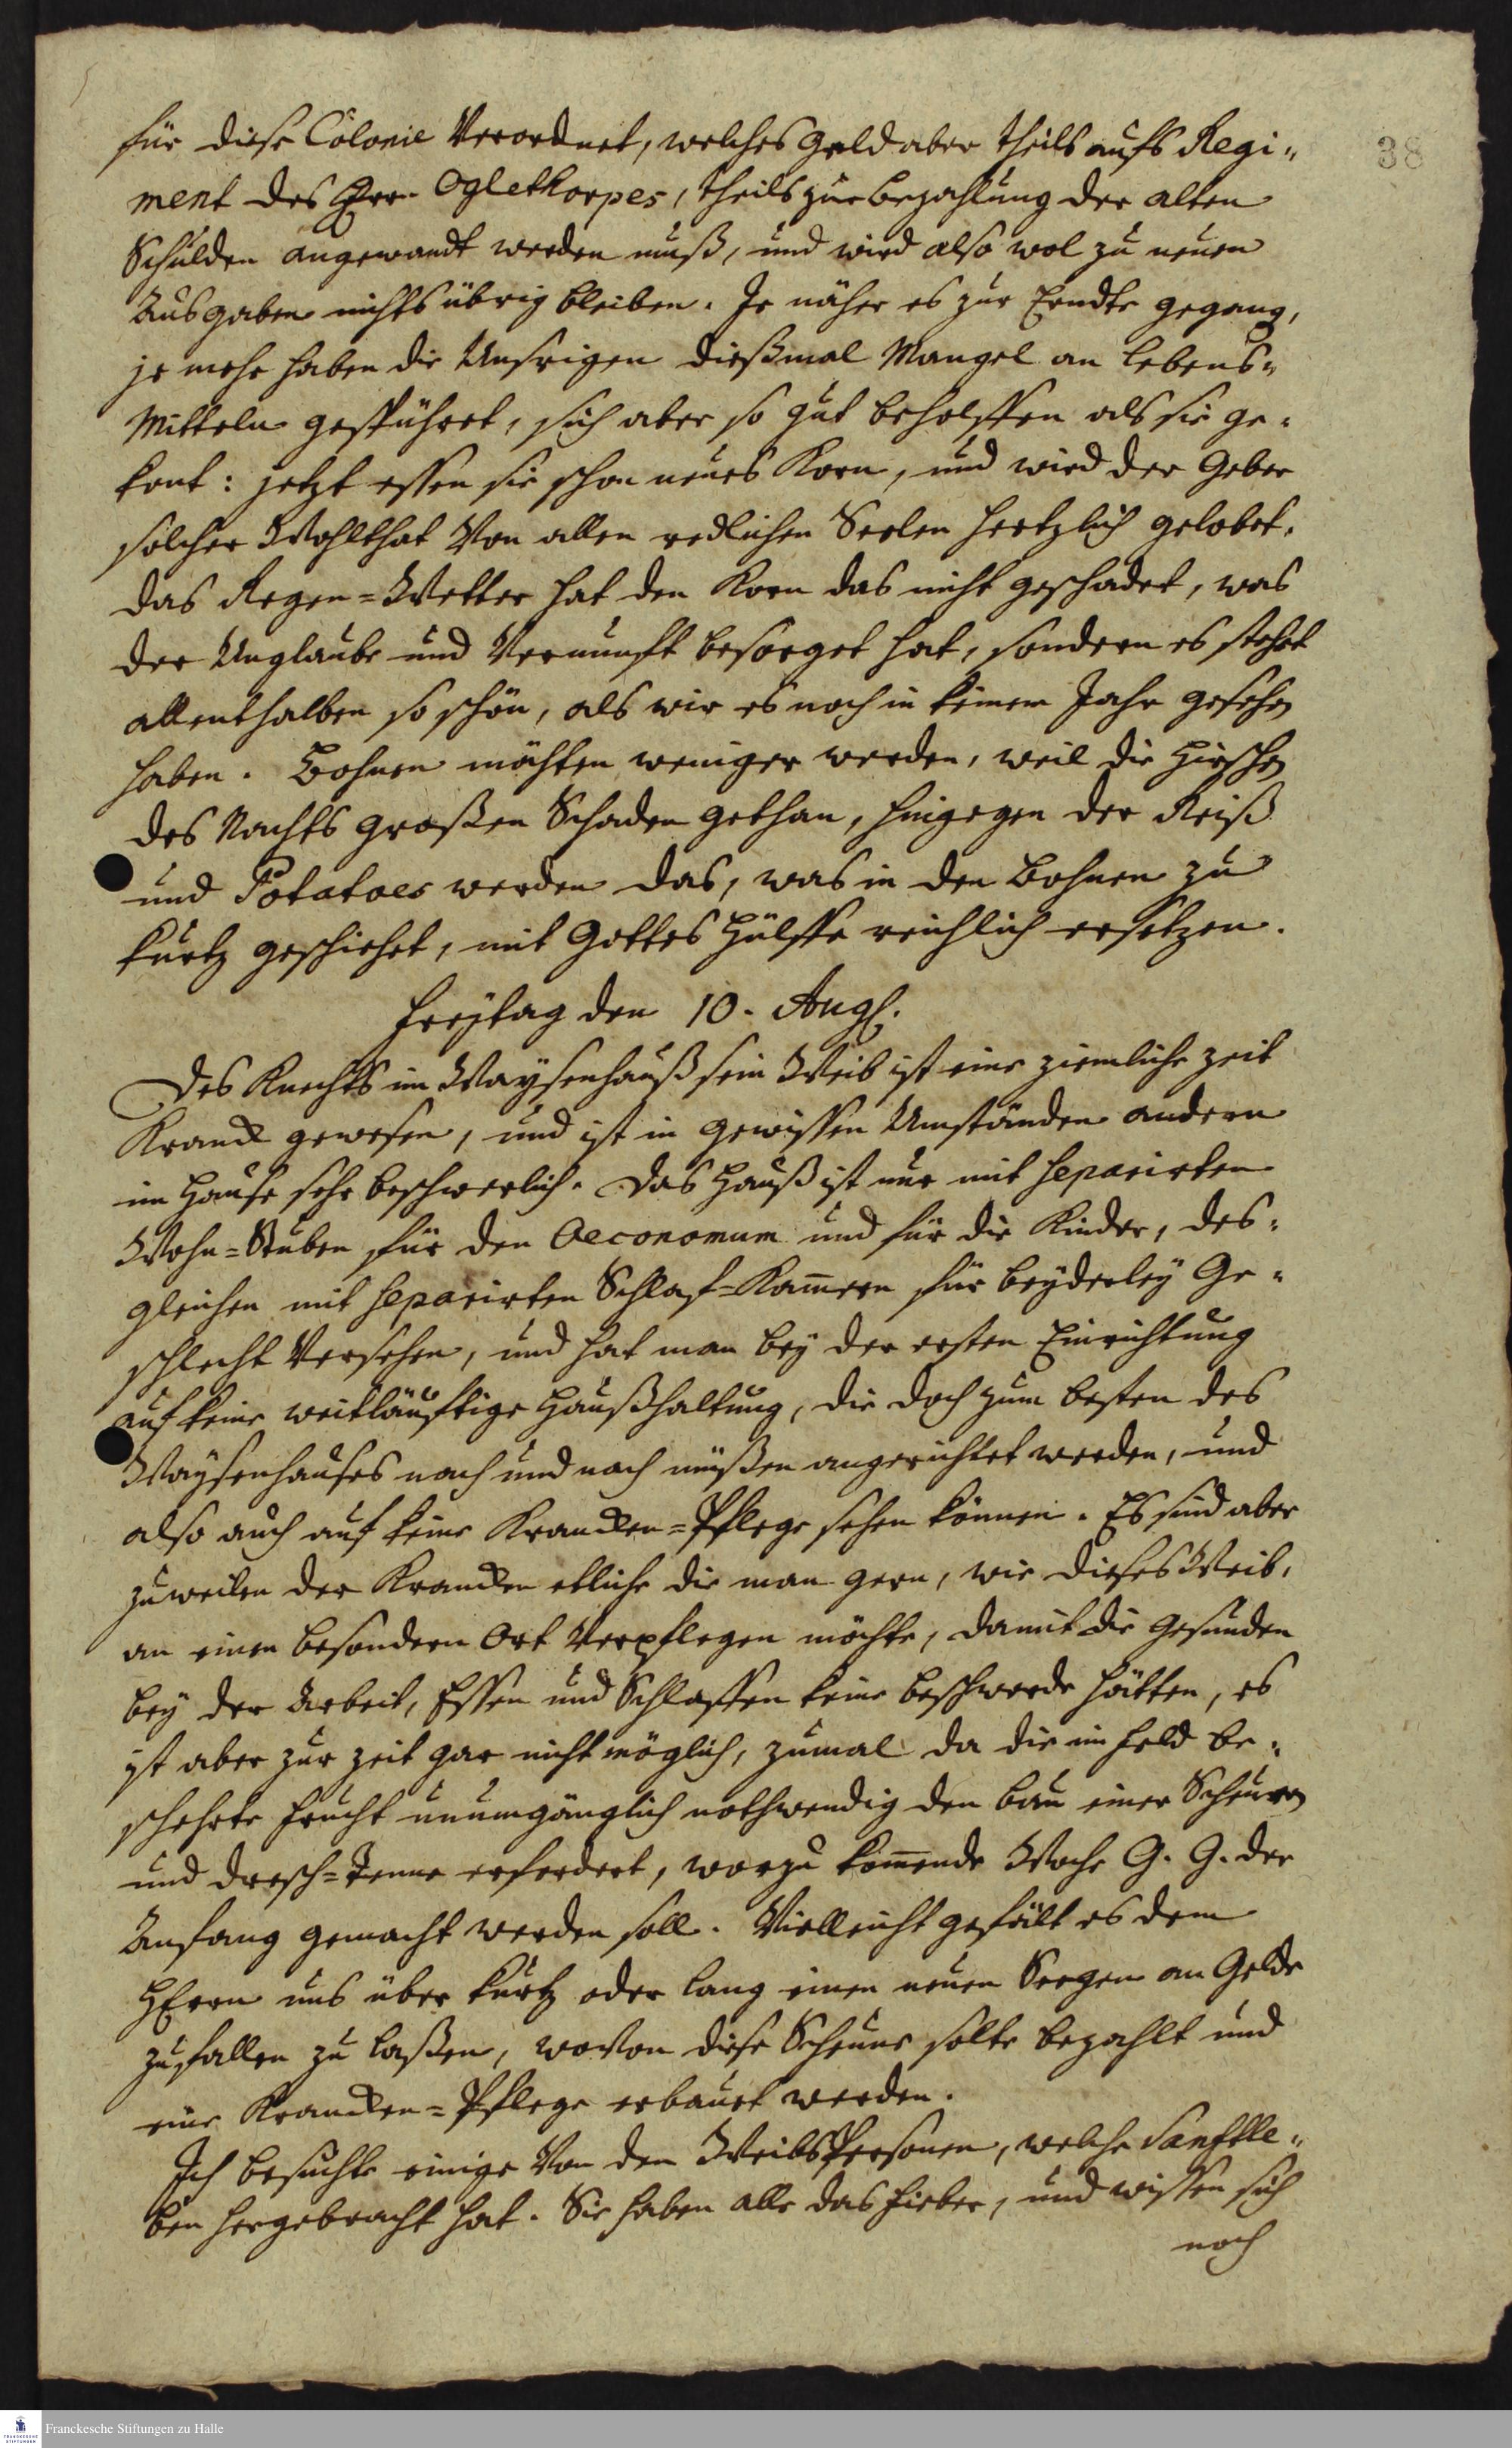 38
für diese Colonie Verordnet, welches Geld aber theils aufs Regi-
ment des Herr Oglethorpes, theils zur bezahlung der alten
Schulden angewandt werden muß, und wird also wol zu neuen
Ausgaben nichts übrig bleiben. Je näher es zur Erndte gegang,
je mehr haben die Unsrigen dießmal Mangel an Lebens-
Mitteln gespühret, sich aber so gut beholffen als sie ge-
kont: jetzt essen sie schon neues Korn, und wird der Geber
solcher Wohlthat Von allen redlichen Seelen hertzlich gelobet.
das Regen=Wetter hat den Korn das nicht geschadet, was
der Unglaube und Vernunft besorget hat, sondern es stehet
allenthalben so schön, als wir es noch in keinem Jahr gesehen
haben. Bohnen möchten weniger werden, weil die Hirschen
des Nachts großen Schaden gethan, hingegen der Reiß
und Potatoes werden das, was in den Bohnen zu
kurtz geschiehet, mit Gottes Hülffe reichlich ersetzen.
Freytag den 10. Aug.
Des Knechts im Waysenhauß sein Weib ist eine ziemliche Zeit
Kranck gewesen, und ist in gewissen Umständen andern
im Hause sehr beschwerlich. Das Hauß ist nur mit separirten
Wohn=Stuben für den Oeconomum und für die Kinder, des-
gleichen mit separirten Schlaf=Kam̄ern für beyderley Ge-
schlecht Versehen, und hat man bey der ersten Einrichtung
auf keine weitläuftige Haußhaltung, die doch zum besten des
Waysenhauses nach und nach müßen angerichtet werden, und
also auch auf keine Krancken=Pflege sehen können. Es sind aber
zuweilen der Krancken etliche die man gern, wie dieses Weib,
an einen besondern Ort Verpflegen möchte, damit die Gesunden
bey der Arbeit, Essen und Schlaffen keine beschwerde hätten, es
ist aber zur Zeit gar nicht möglich, zumal da die im Feld be-
schehrte Frucht unumgänglich nothwendig den bau einer Scheuren
und dresch=Tenne erfordert, worzu kom̄ende Woche G. G. der
Anfang gemacht werden soll. Vielleicht gefält es dem
HErrn uns über kurtz oder lang einen neuen Seegen an Gelde
zufallen zu laßen, woVon diese Scheune solte bezahlt und
eine Krancken=Pflege erbauet werden.
Ich besuchte einige Von den WeibsPersonen, welche Sanftle-
ben hergebracht hat. Sie haben alle das Fieber, und wissen sich
noch
Franckesche Stiftungen zu Halle